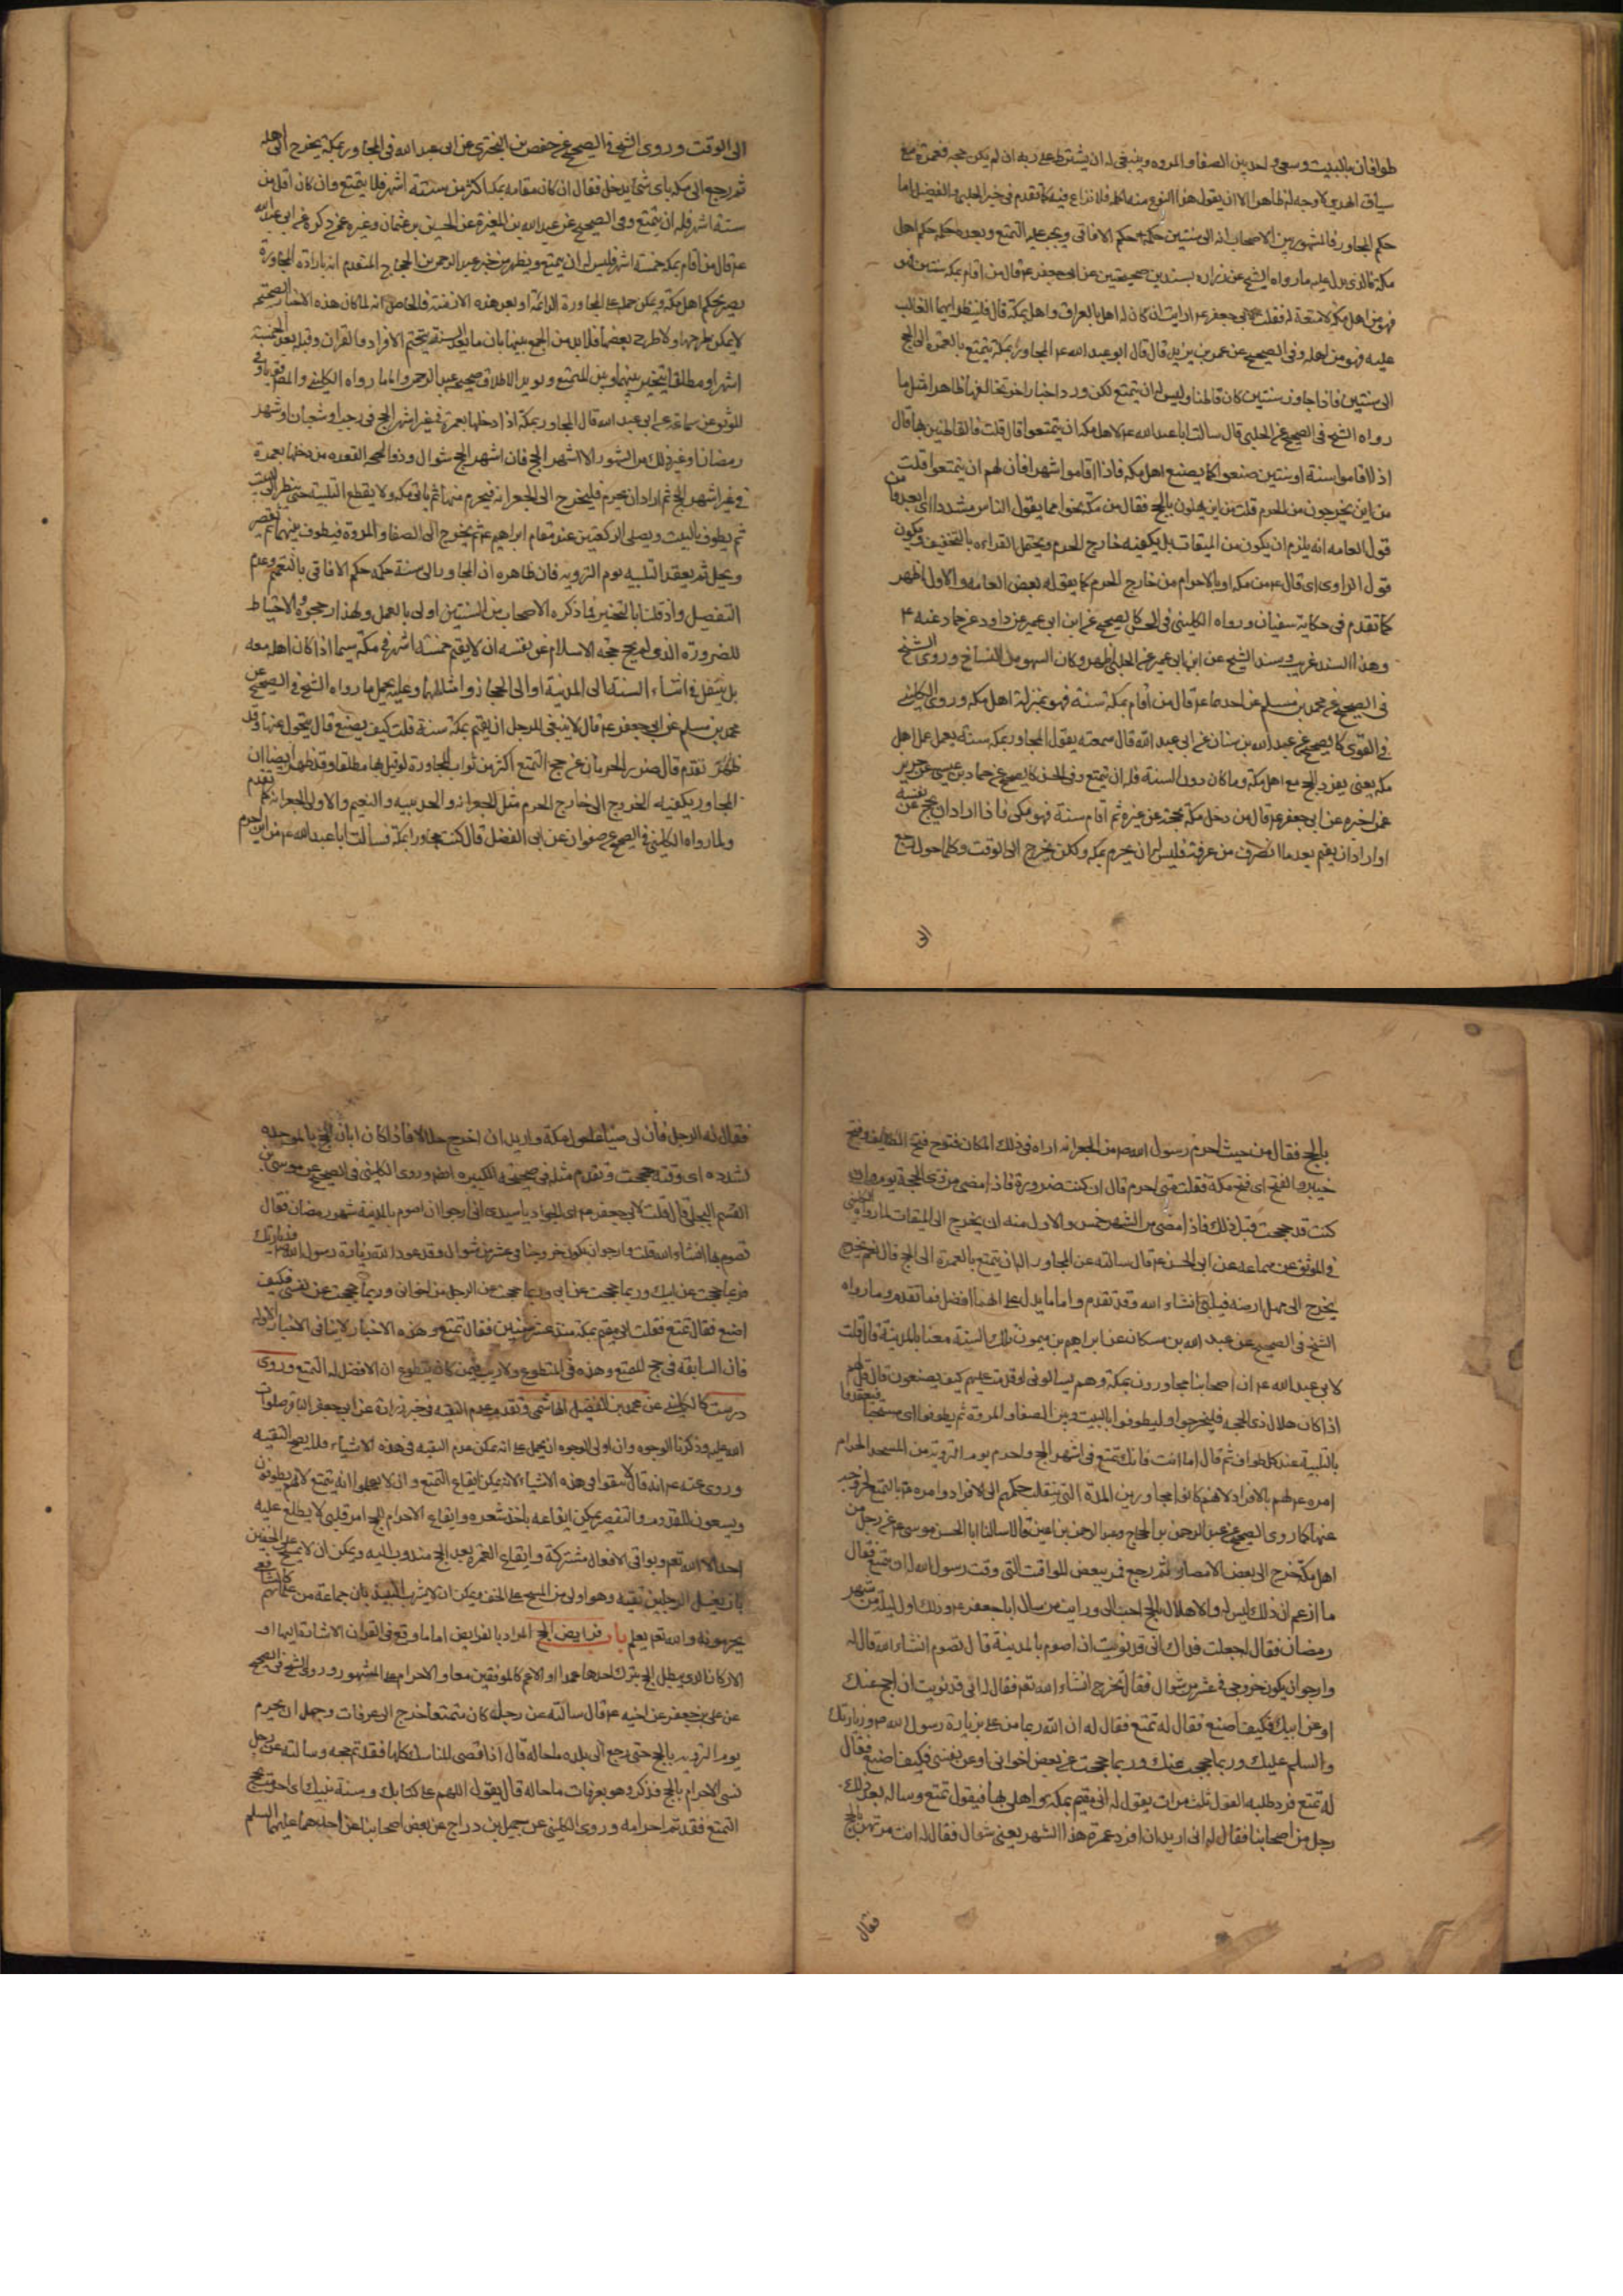 طوافان بالبيت وسعى واحد بين الصفا والمروه وينبغى له ان يشترط على ربه ان لم يكن حجه فعمرة مع
سياق الهدى لا وجه له ظاهرا الا ان يقول هذا النوع منه اكله فلا نزاع فيه كما تقدم فى خبر الحلبى والفضيل اما
حكم المجاور فالمشهور بين الاصحاب انه الى سنتين حكمه حكم الافاقى ويجب عليه التمتع وبعده حكمه حكم اهل
مكة فالذى يدل عليه ما رواه الشيخ عن زراره بسندين صحيحين عن ابى جعفر ع قال من اقام بمكة سنتين فهو
فهو من اهل مكة لا متعة له فقلت لابى جعفر ع ارايت ان كان له اهل بالعراق واهل بمكة قال فلينظر ايهما الغالب
عليه فهو من اهله وفى الصحيح عن عمر بن يزيد قال قال ابو عبد الله ع المجاور بمكة يتمتع بالعمرة الى الحج
الى سنتين فاذا جاوز سنتين كان قاطنا وليس له ان يتمتع لكن ورد اخبار اخر تخالفها ظاهرا مثل ما
رواه الشيخ فى الصحيح عن الحلبى قال سالت ابا عبد الله ع لاهل مكه ان يتمتعوا قال قلت فالقاطنين بها قال
اذا اقاموا سنة او سنتين صنعوا كما يصنع اهل مكه فاذا اقاموا شهرا فان لهم ان يتمتعوا قلت
من اين يخرجون من الحرم قلت من اين يهلون بالحج فقال من مكة نحوا مما يقول الناس مشددا اى
قول العامه انه يلزم ان يكون من الميقات بل يكفيه خارج الحرم ويحتمل القراءه بالتخفيف ويكون
قول الراوى اى قال ع من مكه او بالاحرام من خارج الحرم كما يقوله بعض العامه والاول اظهر
كما تقدم فى حكاية سفيان ورواه الكلينى فى الحسن كالصحيح عن ابن ابى عمير عن داود عن حماد عنه ع
وهذا السند غريب وسند الشيخ عن ابن ابى عمير عن الحلبى اظهر وكان السهو من النساخ وروى الشيخ
فى الصحيح عن محمد بن مسلم عن احدهما ع قال من اقام بمكة سنة فهو بمنزلة اهل مكه وروى الكلينى
فى القوى كالصحيح عن عبد الله بن سنان عن ابى عبد الله قال سمعته يقول المجاور بمكه سنة يعمل عمل اهل
مكه يعنى يفرد الحج مع اهل مكة وما كان دون السنة فله ان يتمتع وفى الحسن كالصحيح عن حماد بن عيسى عن حريز
عمن اخبره عن ابى جعفر ع قال من دخل مكة بحجة عن غيره ثم اقام سنة فهو مكى فاذا اراد ان يحج عن نفسه
او اراد ان يعتمر بعد ما انصرف من عرفة فليس له ان يحرم بمكه ولكن يخرج الى الوقت وكلما حول رجع
الى
الى الوقت وروى الشيخ فى الصحيح عن حفص بن البخترى عن ابى عبد الله فى المجاور بمكة يخرج الى اهله
ثم رجع الى مكه باى شئ يدخل فقال ان كان مقامه بمكه اكثر من ستة اشهر فلا يتمتع وان كان اقل من
ستة اشهر فله ان يتمتع وفى الصحيح عن عبد الله بن المغيرة عن الحسين بن عثمان وغيره عمن ذكره عن ابى عبد الله
ع قال من اقام بمكه خمسة اشهر فليس له ان يتمتع ويظهر من خبر عبد الرحمن بن الحجاج المتقدم انه بارادة المجاورة
يصير بحكم اهل مكة ويمكن حمله على المجاورة الدائمة او بعد هذه الازمنة والحاصل انه لما كان هذه الاخبار الصحيحة
لا يمكن طرحها ولا طرح بعضها فلا بد من الجمع بينها بان ما بعد السنة يتحتم الافراد والقران وقبله بعد الخمسة
اشهر او مطلقا يتخير بينهما وبين التمتع ويؤيد الاطلاق صحيح عبد الرحمن ولما رواه الكلينى والمصنف فى
الموثق عن سماعة عن ابى عبد الله قال المجاور بمكة اذا دخلها بعمرة فى غير اشهر الحج فى رجب او شعبان او شهر
رمضان او غير ذلك من الشهور الا اشهر الحج فان اشهر الحج شوال وذو الحجه القعده من دخلها بعمرة
فى غير اشهر الحج ثم اراد ان يحرم فليخرج الى الجعرانه فيحرم منها ثم ياتى مكه ولا يقطع التلبية حتى ينظر الى البيت
ثم يطوف بالبيت ويصلى الركعتين عند مقام ابراهيم ع ثم يخرج الى الصفا والمروة فيطوف بينهما ثم يقصر
ويحل ثم يعقد التلبيه يوم الترويه فان ظاهره ان المجاور الى سنة حكمه حكم الافاقى بالتمتع وعدم
التفصيل واذ قلنا بالتخيير فما ذكره الاصحاب من السنتين اولى بالعمل ولهذا رجحوه والاحتياط
للضرورة الذى لم يحج حجة الاسلام عن نفسه ان لا يقيم خمسة اشهر فى مكة سيما اذا كان اهله معه
بل ينتقل فى اثناء السنة الى المدينة او الى الحجاز وامثالهما وعليه يحمل ما رواه الشيخ فى الصحيح عن
محمد بن مسلم عن ابى جعفر ع قال لا ينبغى للرجل ان يقيم بمكة سنة قلت كيف يصنع قال يتحول عنها وقد
تقدم قال ضرر الحرمان عن حج التمتع اكثر من ثواب المجاورة لو قيل بها مطلقا وقد ظهر ايضا ان
المجاور يكفيه الخروج الى خارج الحرم مثل الجعرانه والحديبيه والتنعيم والاولى الجعرانة كما تقدم
ولما رواه الكلينى فى الصحيح عن صفوان عن ابى الفضل قال كنت مجاورا بمكة فسالت ابا عبد الله ع من اين احرم
بالحج فقال من حيث احرم رسول الله ص من الجعرانه اتاه فى ذلك المكان فتوح فتح الطائف وفتح
خيبر والفتح اى فتح مكة فقلت متى احرم قال ان كنت ضرورة فاذا مضى من ذى الحجة يوم وان
كنت قد حججت قبل ذلك فاذا مضى من الشهر خمس والاولى منه ان يخرج الى الميقات لما رواه الكلينى
فى الموثق عن سماعه عن ابى الحسن ع قال سالته عن المجاور اله ان يتمتع بالعمرة الى الحج قال نعم يخرج
يخرج الى مهل ارضه فيلبى انشاء الله وقد تقدم واما ما يدل على انهما افضل فما تقدم وما رواه
الشيخ فى الصحيح عن عبد الله بن مسكان عن ابراهيم بن ميمون تلك السنة معنا بالمدينة قال قلت
لابى عبد الله ع ان اصحابنا مجاورون بمكة وهم يسالونى لو قدمت عليهم كيف يصنعون قال قل لهم
اذا كان هلال ذى الحجه فليخرجوا وليطوفوا بالبيت وبين الصفا والمروة ثم يطوفوا فيعقدوا
بالتلبية عند كل طواف ثم قال اما انت فانك تتمتع فى اشهر الحج واحرم يوم التروية من المسجد الحرام
امره ع لهم بالافراد لانهم كانوا مجاورين المدة التى ينتقل حكمهم الى الافراد وامره ع بالتمتع لخروجه
عنها كما روى الصحيح عن عبد الرحمن بن الحجاج وعبد الرحمن بن اعين قالا سالنا ابا الحسن موسى ع عن رجل من
اهل مكة خرج الى بعض الامصار ثم رجع فمر ببعض المواقيت التى وقت رسول الله له ان يتمتع فقال
ما ازعم ان ذلك ليس له والاهلال بالحج احب الى ورايت من سال ابا جعفر ع وذلك اول ليلة من شهر
رمضان فقال اجعلت فداك انى قد نويت ان اصوم بالمدينة قال تصوم انشاء الله قال له
وارجو ان يكون خروجى فى عشر من شوال فقال تخرج انشاء الله تعم فقال له انى قد نويت ان احج عنك
او عن ابيك فكيف اصنع فقال له تمتع فقال له ان الله ربما من على بزيارة رسول الله ص وزيارتك
والسلم عليك وربما حججت عنك وربما حججت عن بعض اخوانى او عن نفسى فكيف اصنع فقال
له تمتع فرد عليه القول ثلث مرات يقول له انى مقيم بمكة واهلى بها فيقول تمتع وساله بعد ذلك
رجل من اصحابنا فقال له انى اريد ان افرد عمرة هذا الشهر يعنى شوال فقال له انت مرتهن بالحج
فقال
فقال له الرجل فان لى ضيعة حول مكة واريد ان اخرج حلالا فاذا كان ابان الحج بالموحده
المشدده اى وقته حججت وتقدم مثله فى صحيحته الكبيره اظهر وروى الكلينى فى الصحيح عن موسى بن
القسم البجلى قال قلت لابى جعفر ع اى الجواد يا سيدى انى ارجو ان اصوم بالمدينة شهر رمضان فقال
تصوم بها انشاء الله قلت وارجو ان يكون خروجنا فى عشر من شوال وقد عود الله زيارة رسول الله ص وزيارتك
فربما حججت عن ابيك وربما حججت عن ابى وربما حججت عن الرجل من اخوانى وربما حججت عن نفسى فكيف
اصنع فقال تمتع فقلت انى مقيم بمكة منذ عشر سنين فقال تمتع وهذه الاخبار لا ينافى الاخبار الاولة
فان السابقة فى حج المتمتع وهذه فى المتطوع ولا ريب فيمن كان يتطوع ان الافضل له التمتع وروى
درست كالكلينى عن محمد بن الفضيل الهاشمى وتقدم عدم التقيه فى خبر زرارة عن ابى جعفر الباقر صلوات
الله عليه وذكرنا الوجوه وان اولى الوجوه ان يحمل على انه يمكن عدم التقيه فى هذه الاشياء فلا يصح التقيه
وروى عنه ع انه قال لا تتقوا فى هذه الاشياء لانه يمكن ايقاع التمتع وان لا يعلموا انه يتمتع لانهم يطوفون
ويسعون للقدوم والتقصير يمكن ايقاعه باخذ شعره وايقاع الاحرام بالحج امر قلبى لا يطلع عليه
احد الا الله تعم وبواقى الافعال مشتركة وايقاع العمرة بعد الحج مندوب اليه ويمكن ان لا يمسح على الخفين
بان يغسل الرجلين تقيه وهو اولى من المسح على الخف ويمكن ان لا يشرب النبيذ بان جماعة من علمائهم كالشافعى
يحرمونه والله تعم يعلم باب فرايض الحج المراد بالفرايض اما ما وقع فى القران الاشارة اليها او
الاركان الذى يبطل الحج بترك احدها عمدا او الاعم كالموقفين معا والاحرام على المشهور وروى الشيخ فى الصحيح
عن على بن جعفر عن اخيه ع قال سالته عن رجل كان متمتعا خرج الى عرفات وجهل ان يحرم
يوم الترويه بالحج حتى رجع الى بلده ما حاله قال اذا قضى المناسك كلها فقد تم حجه وسالته عن رجل
نسى الاحرام بالحج فذكر وهو بعرفات ما حاله قال يقول اللهم على كتابك وسنة نبيك اى احرمت بحج
التمتع فقد تم احرامه وروى الكلينى عن جميل بن دراج عن بعض اصحابنا عن احدهما عليهما السلم